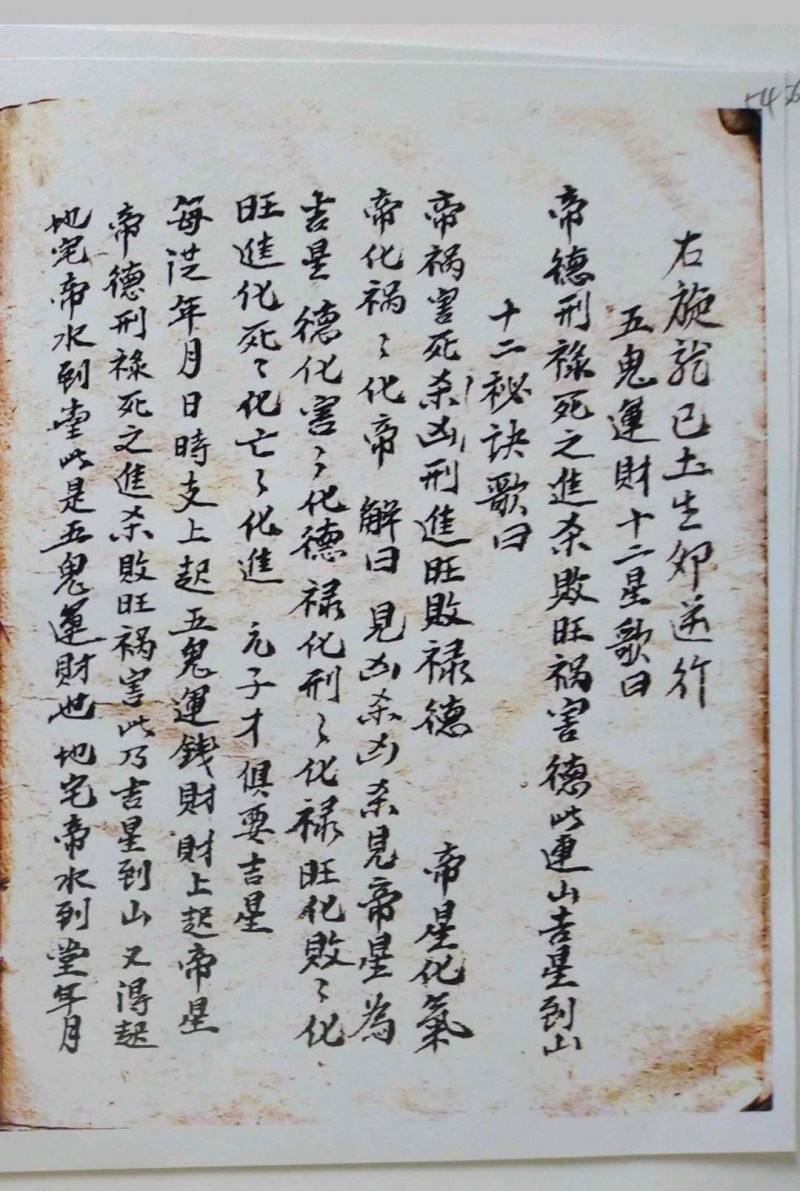 右旋龍巳土生卯逆行
五鬼運財十二星歌曰
帝德刑祿死之進杀敗旺禍害德此連山吉星到山
十二秘訣歌曰
帝祸害死杀凶刑進旺敗禄德 帝星化氣
帝化祸〻化帝 解曰 見凶杀凶杀見帝星為
吉星 德化害〻化德 禄化刑〻化禄旺化敗〻化
旺進化死〻化亡〻化進 元子才俱要吉星
每從年月日時支上起五鬼運錢財財上起帝星
帝德刑祿死之進杀敗旺祸害此乃吉星到山又得起
地宅帝水到堂此是五鬼運財也地宅帝水到堂年月